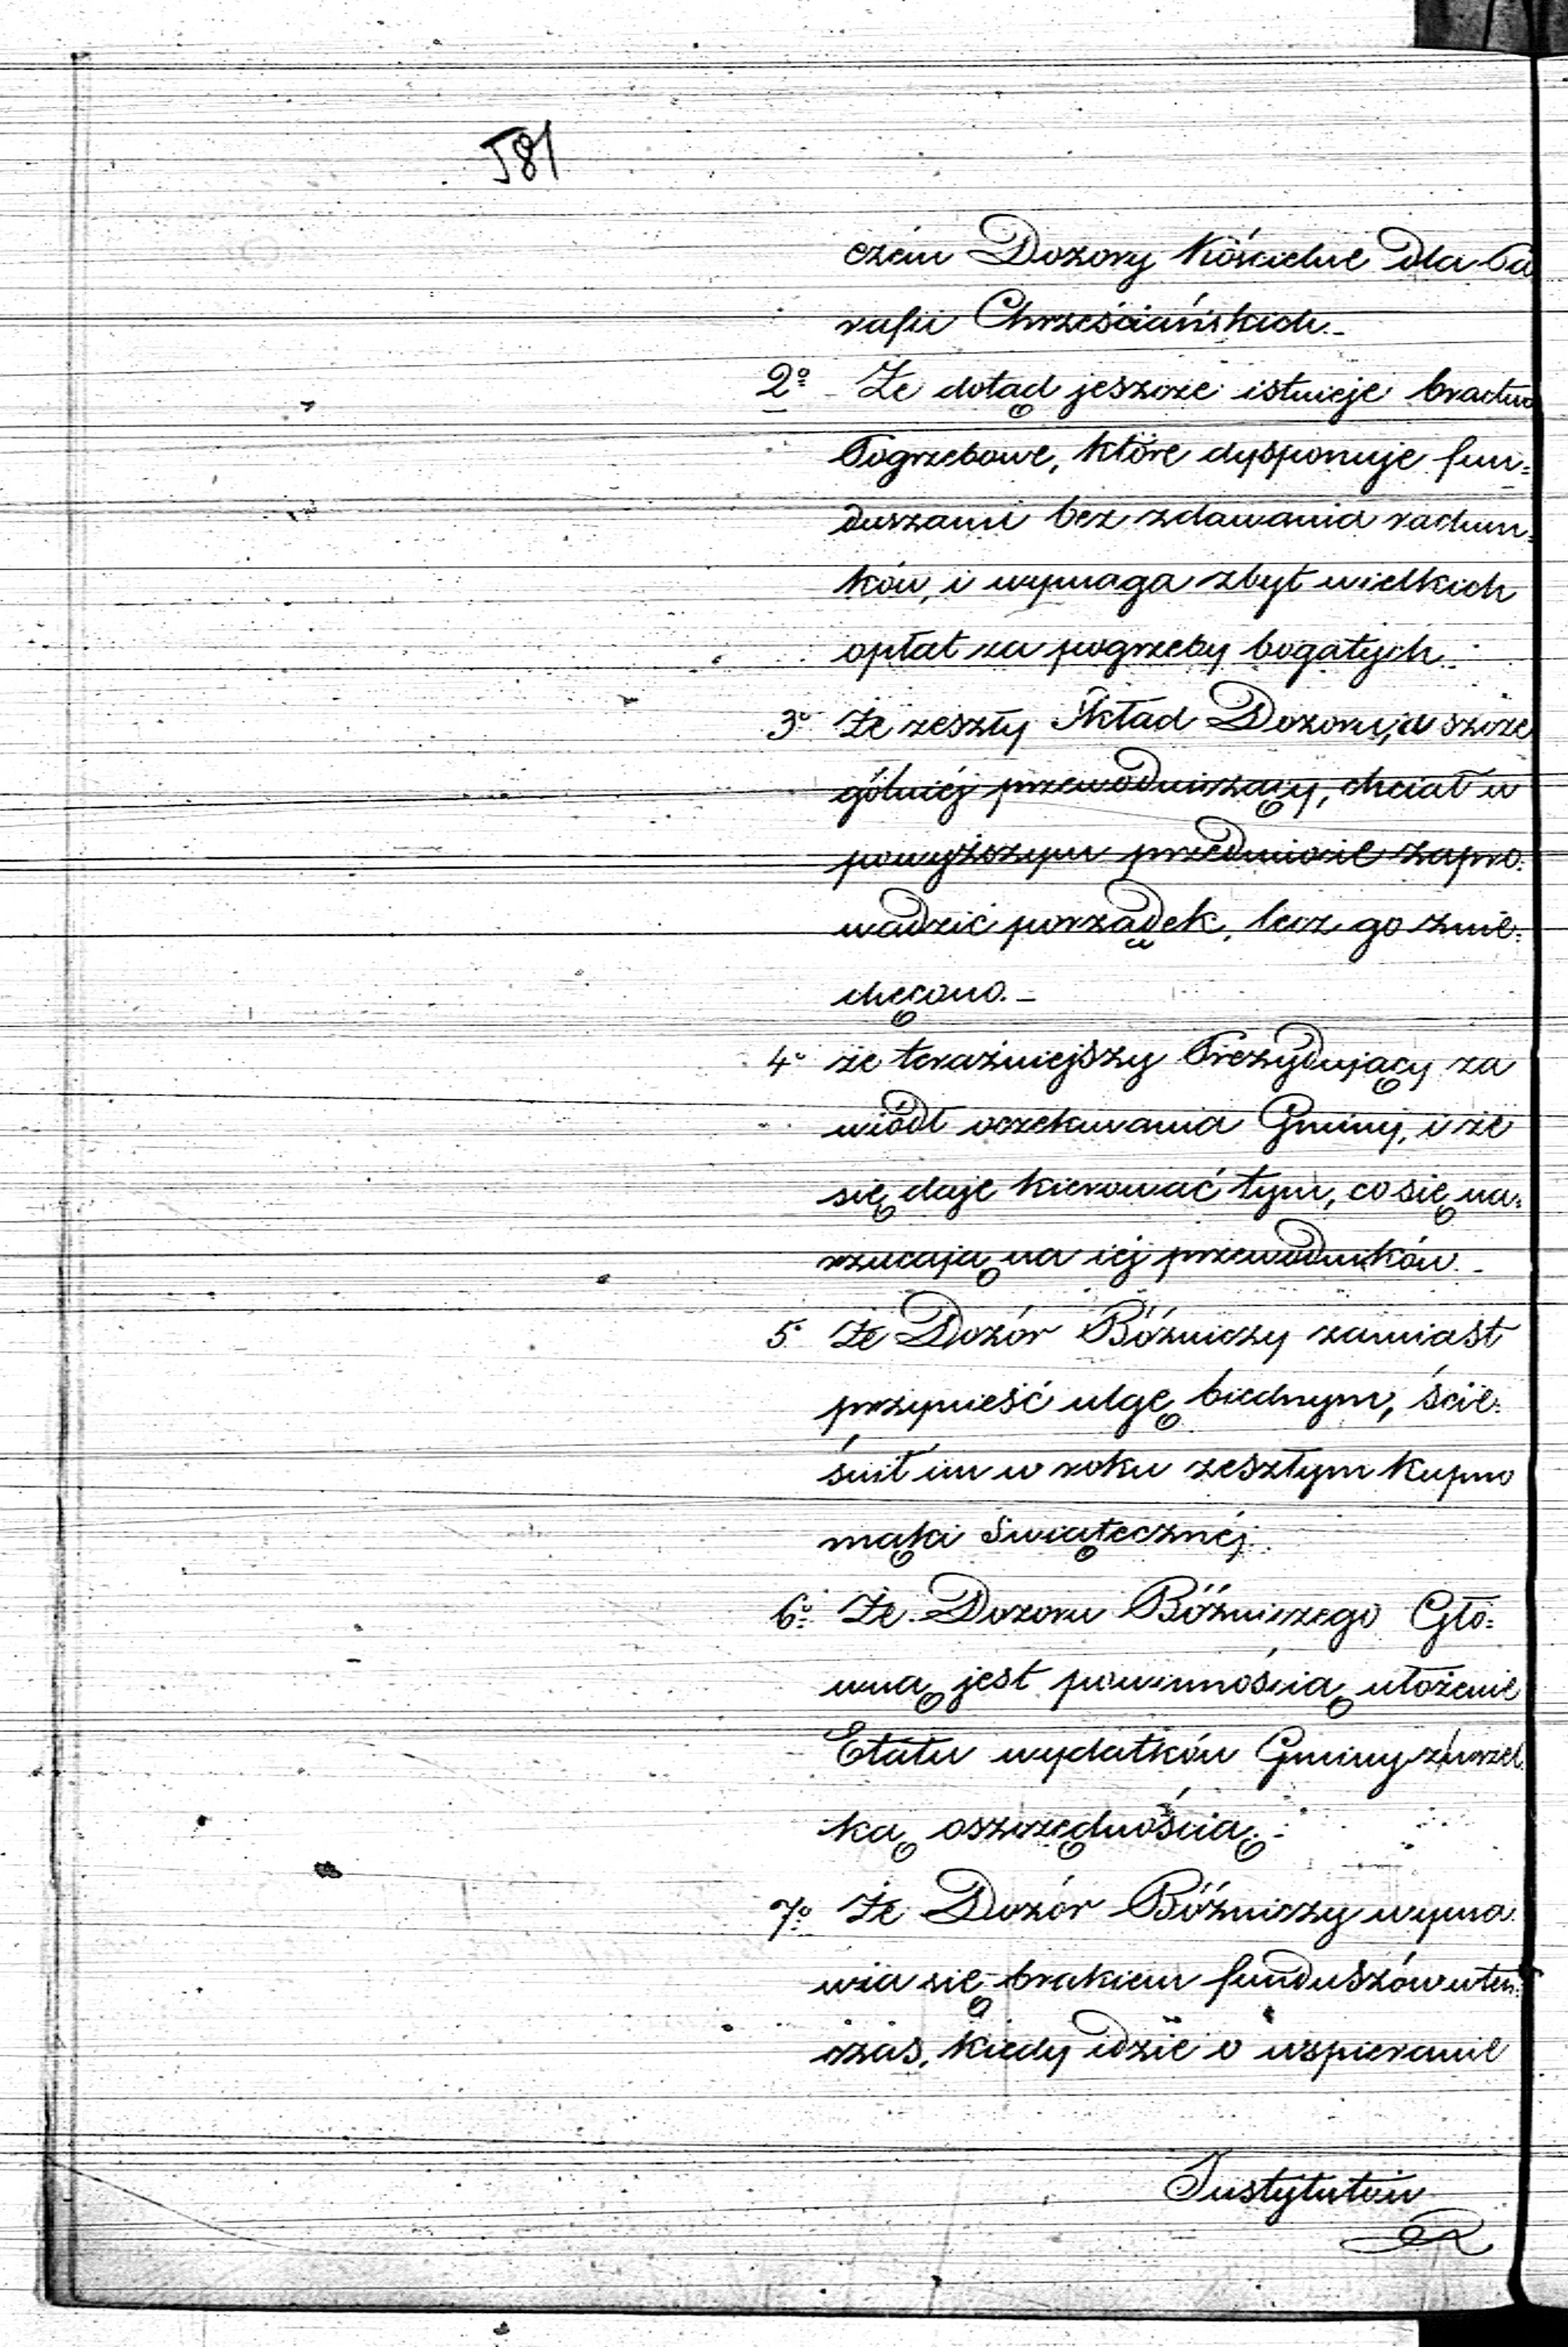 581
czém Dozory Kościelne dla Pa
rafii Chrześciańskich.-
2o Że dotąd jeszcze istnieje bractwo
Pogrzebowe, które dysponuje fun=
duszami bez zdawania rachun=
ków, i wymaga zbyt wielkich
opłat za pogrzeby bogatych.
3o Że zeszły Skład Dozoru, a szcze
gólniéj przewodniczący, chciał w
powyższym przedmiocie zapro=
wadzić porządek, lecz go znie=
chęcono.-
4o że teraźniejszy Prezydujący za
wiódł oczekiwania Gminy, i że
się daje kierować tym, co się na=
rzucają na iéj przewodników.-
5o Że Dozór Bóżniczy zamiast
przynieść ulgę biednym, ście=
śnił im w roku zeszłym kupno
mąki Świątecznéj.
6o Że Dozoru Bóżniczego Głó=
wną jest powinnością ułożenie
Etatu wydatków Gminy z wszel
ką oszczędnością.
7o Że Dozór Bóżniczy wyma
wia się brakiem funduszów wten=
czas, kiedy idzie o wspieranie
Instytutów